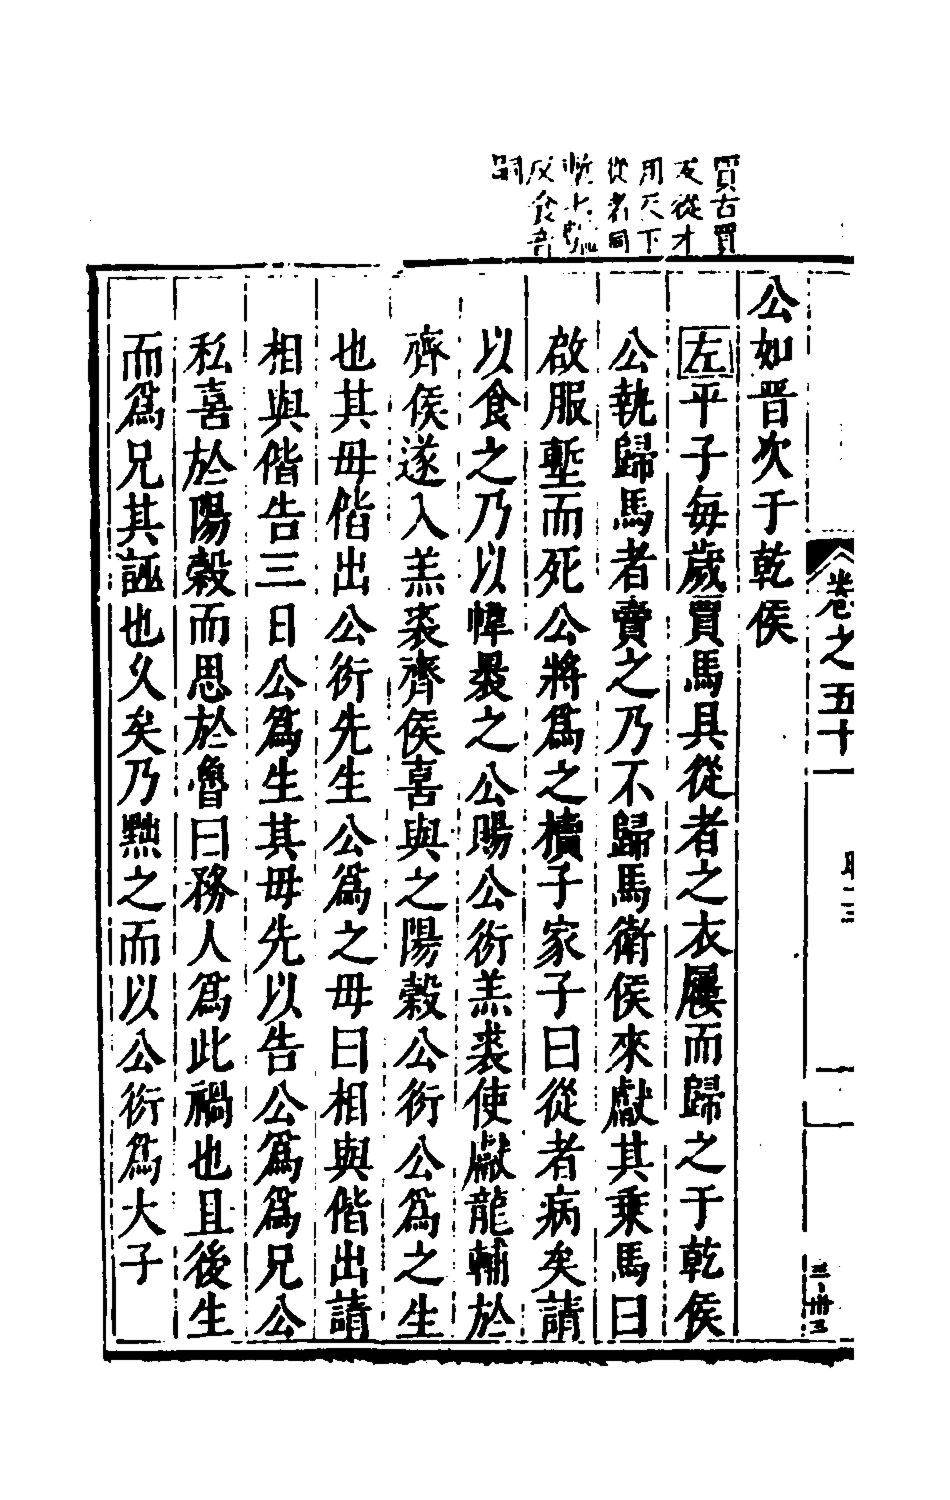 買古買
反從才
用反下
從者同
塹七豔
反食音
嗣
卷之五十
公如晋次于乾侯
左平子每歲買馬具從者之衣屨而歸之于乾侯
公執歸馬者賣之乃不歸馬衛侯來獻其乗馬曰
啟服塹而死公將爲之櫝子家子曰從者病矣請
以食之乃以幃裹之公賜公衍羔裘使獻龍輔於
齊侯遂入羔裘齊侯喜與之陽穀公衍公爲之生
也其母偕出公衍先生公爲之母曰相與偕出請
相與偕告三日公爲生其母先以告公爲爲兄公
私喜於陽穀而思於魯曰務人爲此禍也且後生
而爲兄其誣也久矣乃黜之而以公衍爲大子